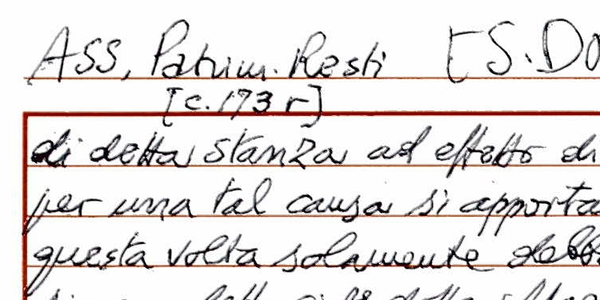 ASS, Patrim. Resti [S. DO
[c. 173 r]
di detta stanza ad effetto di
per una tal causa si apporta
questa volta solamente debb